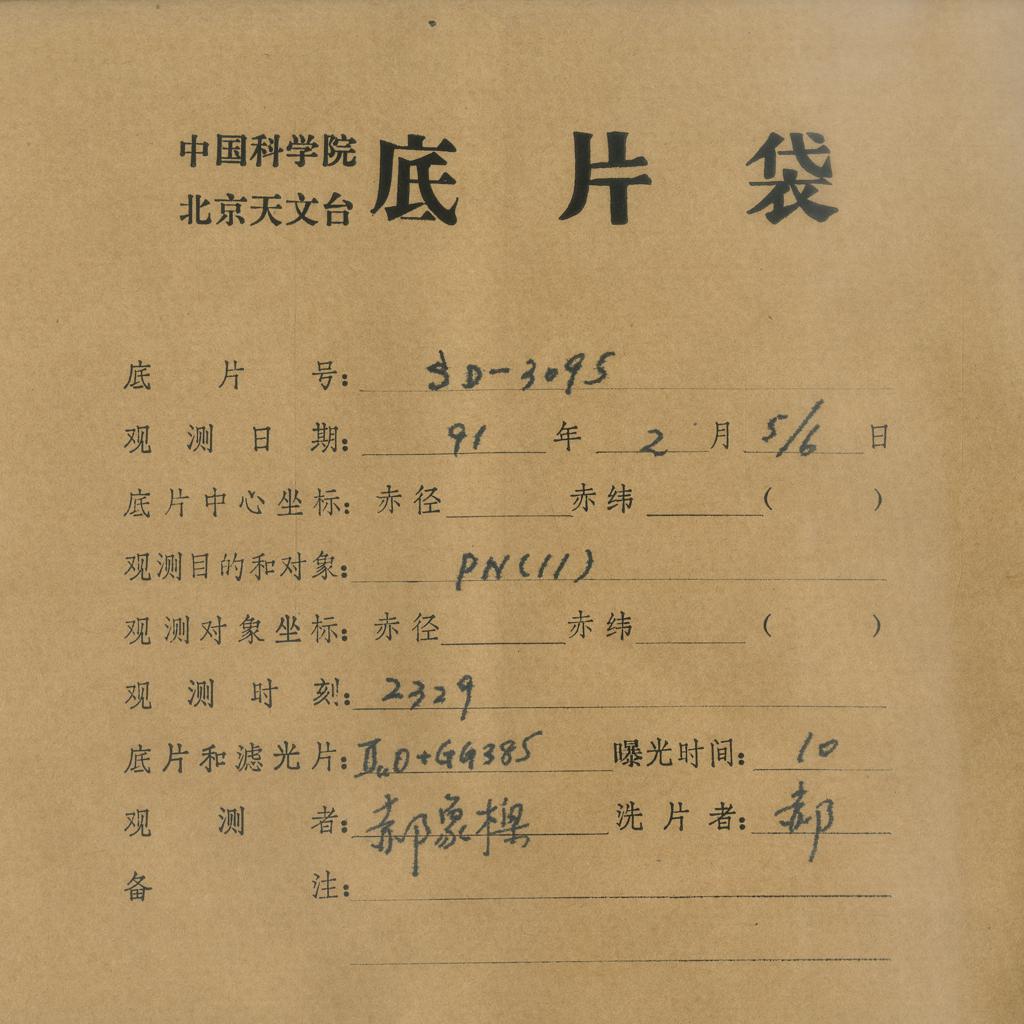 中国科学院
北京天文台
底片袋
底片号: SD-3095
观测日期: 91年 2月 5/6日
底片中心坐标: 赤径 赤纬 ( )
观测目的和对象: PN(11)
观测对象坐标: 赤径 赤纬 ( )
观测时刻: 2329
底片和滤光片: IIaD+GG385 曝光时间: 10
观测者: 郝象樑 洗片者: 郝
备注: